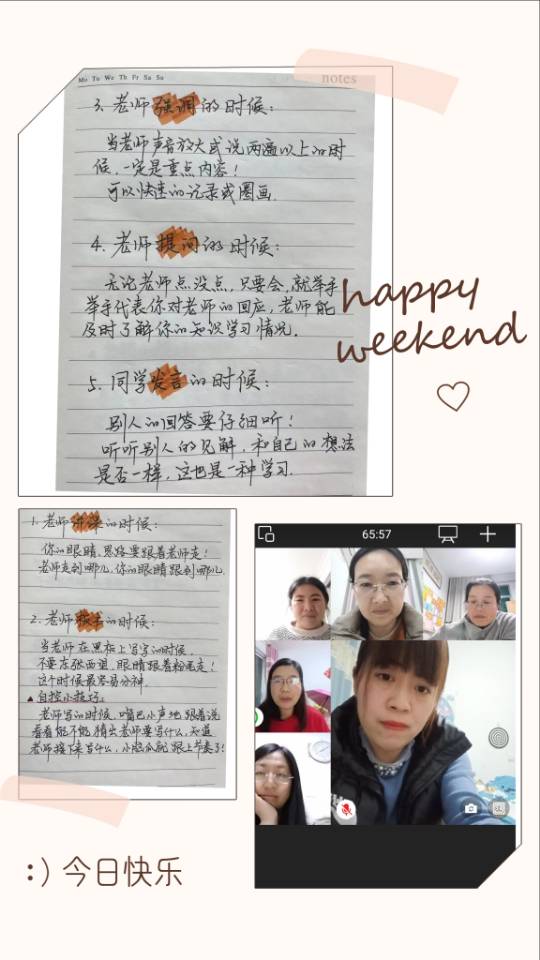 Mo Tu We Th Fr Sa Su
notes
3. 老师强调的时候：
当老师声音放大或说两遍以上的时
候，一定是重点内容！
可以快速的记录或圈画.
4. 老师提问的时候：
无论老师点没点，只要会，就举手
举手代表你对老师的回应，老师能
及时了解你的知识学习情况.
5. 同学发言的时候：
别人的回答要仔细听！
听听别人的见解，和自己的想法
是否一样，这也是一种学习.
happy
weekend
1. 老师讲课的时候：
你的眼睛、思路要跟着老师走！
老师走到哪儿，你的眼睛跟到哪儿
2. 老师板书的时候：
当老师在黑板上写字的时候，
不要左张西望，眼睛跟着粉笔走！
这个时候最容易分神.
▲自控小技巧：
老师写的时候，嘴巴小声地跟着说
看看能不能猜出老师要写什么，知道
老师接下来写什么，小脑瓜就跟上节奏了！
65:57
:) 今日快乐